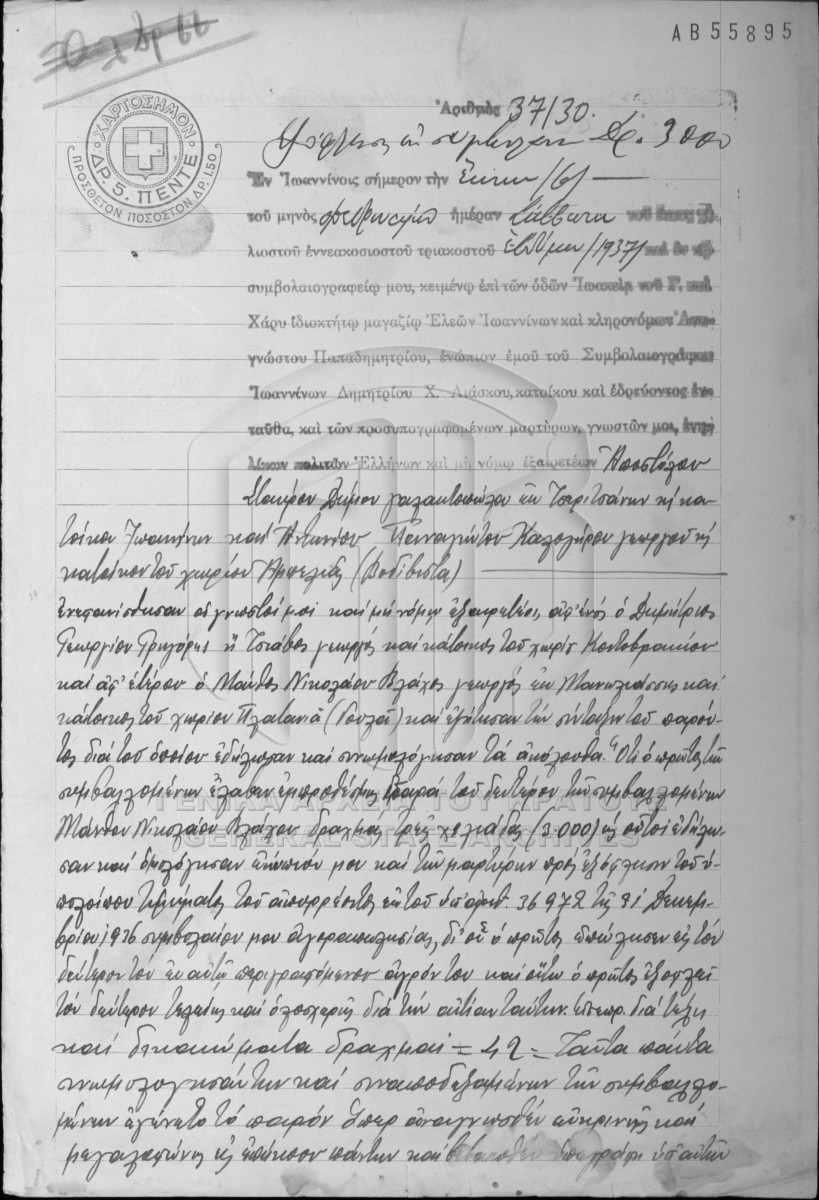 ΑΒ55895
ΧΑΡΤΟΣΗΜΟΝ
ΔΡ. 5. ΠΕΝΤΕ
ΠΡΟΣΘΕΤΟΝ ΠΟΣΟΣΤΟΝ ΔΡ. 1.50
Ἀριθμὸς 37130.
Ἐξόφλησις ἐκ συμβολαίου Δρ. 3000
Ἐν Ἰωαννίνοις σήμερον τὴν ἕκτην /6/
τοῦ μηνὸς Φεβρουαρίου ἡμέραν Σάββατον τοῦ ἔτους χι-
λιοστοῦ ἐννεακοσιοστοῦ τριακοστοῦ ἑβδόμου /1937/ καὶ ἐν τῷ
συμβολαιογραφείῳ μου, κειμένῳ ἐπὶ τῶν ὁδῶν Ἰωακεὶμ τοῦ Γ. καὶ
Χάρυ ἰδιοκτήτῳ μαγαζίῳ Ἐλεῶν Ἰωαννίνων καὶ κληρονόμων Ἀνα-
γνώστου Παπαδημητρίου, ἐνώπιον ἐμοῦ τοῦ Συμβολαιογράφου
Ἰωαννίνων Δημητρίου Χ. Λιάσκου, κατοίκου καὶ ἑδρεύοντος ἐν-
ταῦθα, καὶ τῶν προσυπογραφομένων μαρτύρων, γνωστῶν μοι, ἐνη-
λίκων πολιτῶν Ἑλλήνων καὶ μὴ νόμῳ ἐξαιρετέων Ἀποστόλου
Σταύρου Δήμου γαλακτοπώλου ἐκ Τσεριτσάνων καὶ κα-
τοίκου Ἰωαννίνων καὶ Ἀντωνίου Παναγιώτου Καλογήρου γεωργοῦ καὶ
κατοίκου τοῦ χωρίου Ἀμπελιᾶς (Βοδίβιστα)
ἐνεφανίσθησαν οἱ γνωστοί μοι καὶ μὴ νόμῳ ἐξαιρετέοι, ἀφ' ἑνὸς ὁ Δημήτριος
Γεωργίου Γρηγόρης ἢ Τσιάβος γεωργὸς καὶ κάτοικος τοῦ χωρίου Κοντοβρακίου
καὶ ἀφ' ἑτέρου ὁ Μάνθος Νικολάου Βλάχος γεωργὸς ἐκ Μανωλιάσσης καὶ
κάτοικος τοῦ χωρίου Πλατανιᾶ καὶ ἐζήτησαν τὴν σύνταξιν τοῦ παρόν-
τος διὰ τοῦ ὁποίου ἐδήλωσαν καὶ συνωμολόγησαν τὰ ἀκόλουθα. Ὅτι ὁ πρῶτος τῶν
συμβαλλομένων ἔλαβεν ἐμπροθέσμως παρὰ τοῦ δευτέρου τῶν συμβαλλομένων
Μάνθου Νικολάου Βλάχου δραχμὰς τρεῖς χιλιάδας (3.000) ὡς οὗτοι ἐδήλω-
σαν καὶ ὡμολόγησαν ἐνώπιόν μου καὶ τῶν μαρτύρων πρὸς ἐξόφλησιν τοῦ ὑ-
πολοίπου τιμήματος τοῦ ἀπορρέοντος ἐκ τοῦ ὑπ' ἀριθ. 36972 τῆς 31 Δεκεμ-
βρίου 1936 συμβολαίου μου ἀγοραπωλησίας, δι' οὗ ὁ πρῶτος ἐπώλησεν εἰς τὸν
δεύτερον τὸν ἐν αὐτῷ περιγραφόμενον ἀγρόν του καὶ οὕτω ὁ πρῶτος ἐξοφλεῖ
τὸν δεύτερον τελείως καὶ ὁλοσχερῶς διὰ τὴν αἰτίαν ταύτην. διὰ τέλη
καὶ δικαιώματα δραχμαὶ =42= Ταῦτα πάντα
συνωμολογησάντων καὶ συναποδεξαμένων τῶν συμβαλλο-
μένων ἐγένετο τὸ παρὸν ὅπερ ἀναγνωσθὲν εὐκρινῶς καὶ
μεγαλοφώνως εἰς ἐπήκοον πάντων καὶ βεβαιωθὲν ὑπεγράφη ὑπ' αὐτῶν
ΓΕΝΙΚΑ ΑΡΧΕΙΑ ΤΟΥ ΚΡΑΤΟΥΣ
GENERAL STATE ARCHIVES